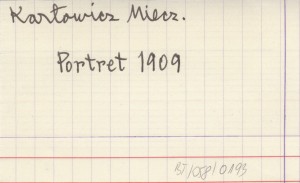 Karłowicz Miecz.
Portret 1909
BJ/058/0193